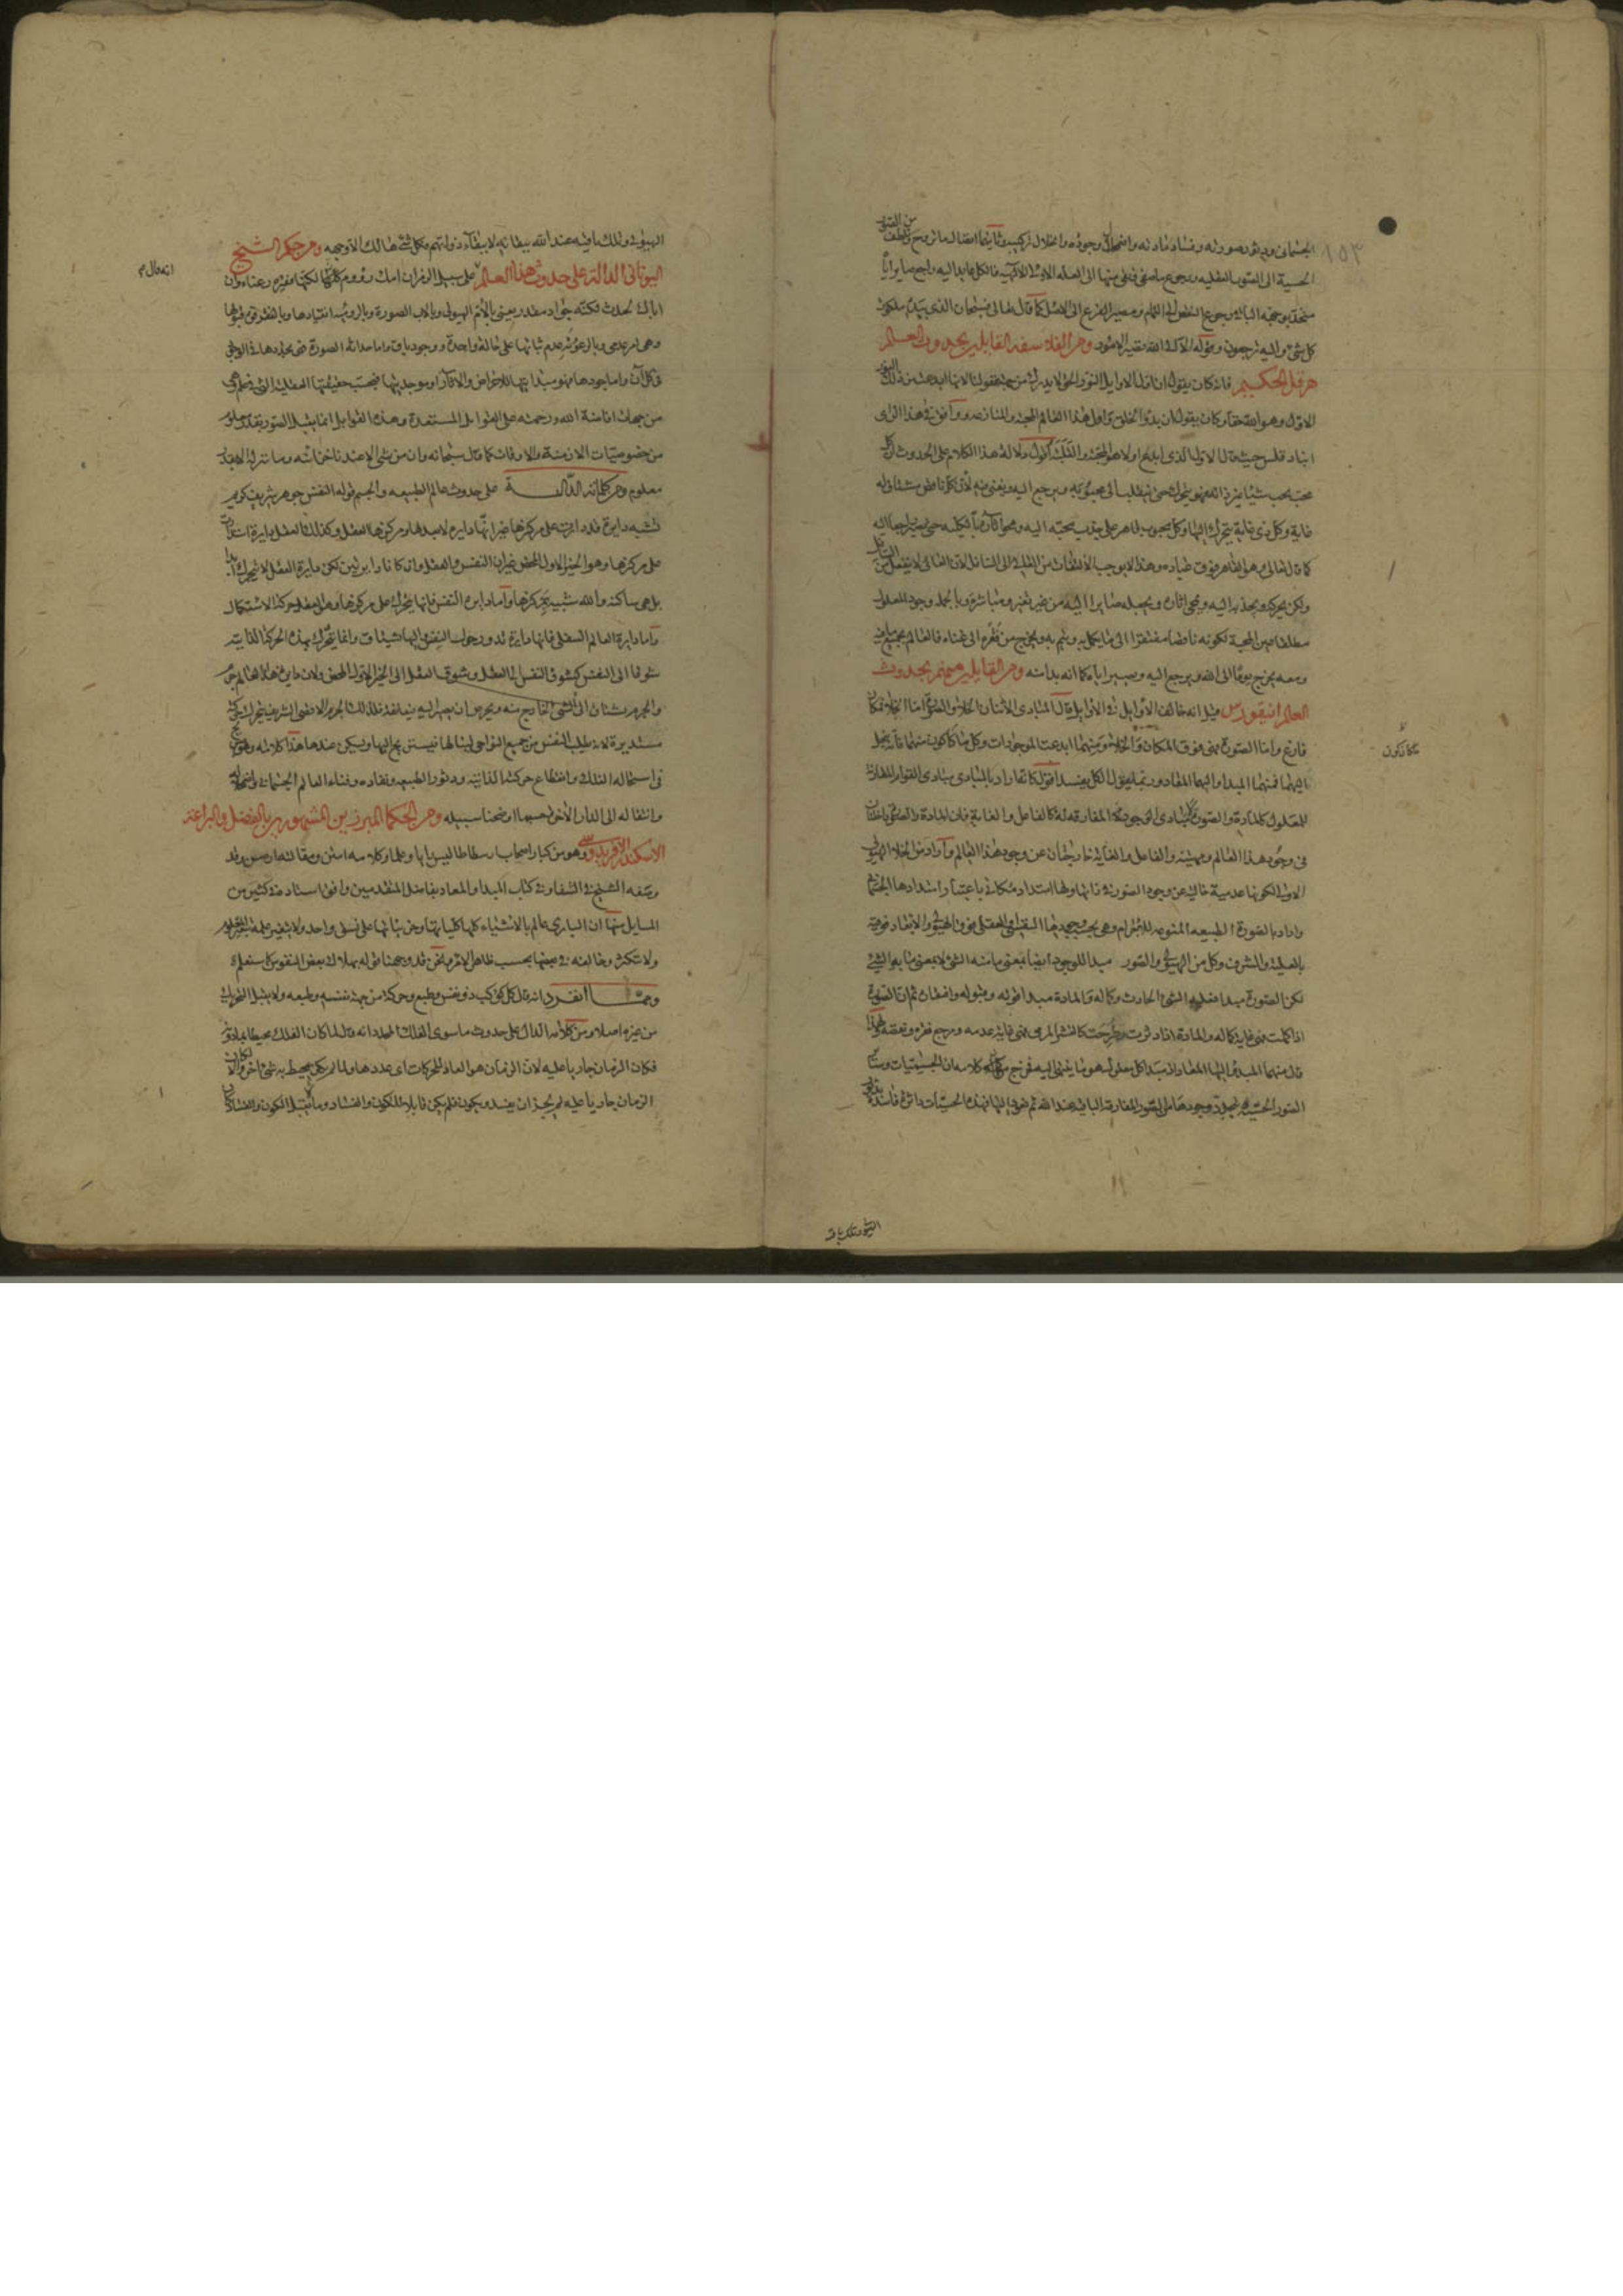 الجسمانى ودثور صورته وفساد مادته واضمحلال وجوده وانحلال تركيبه وثانيهما انتقال ما تروح وتلطف من الصور
الحسية الى الصور العقليه ورجوع ما صفى منها الى العله الاولى الالهيه فالكل عايد اليه راجع صايراً
متحد بوجهه الباقى رجوع النقص الى التمام ومصير الفرع الى الاصل كما قال تعالى فسبحان الذى بيده ملكوت
كل شئ واليه ترجعون وقوله الا الى الله تصير الامور ومن الفلاسفه القايلين بحدوث العالم
هرقل الحكيم فانه كان يقول ان اول الاوايل النور الحق لا يدرك من جهة عقولنا لانها ابدعت من ذلك النور
الاول وهو الله حقا وكان يقول ان بدو الخلق واول هذا العالم المحبة والمنازعه ووافق فى هذا الراى
انباد قلس حيث قال الاول الذى ابدع اولا هو المحبة والغلبة اقول دلالة هذا الكلام على الحدوث ان كل
محب يحب شيئا
غاية وكل ذى غاية يتحرك اليها وكل محبوب قاهر على جذب محبه اليه ومحو اثاره بالكليه حتى يصير راجعا اليه
كما قال تعالى وهو القاهر فوق عباده وهذا لا يوجب الالتفات من العالى الى السافل لان العالى لا ينفعل من السافل
ولكن يحركه ويجذبه اليه ويمحى اثاره ويجعله صايرا اليه من غير تغير ومباشرة وبالجمله وجود المعلول
مطلقا من المحبة لكونه ناقصا مفتقرا الى ما يكمله ويتم به ويخرج من فقره الى غناه فالعالم بجميع ما فيه
ومعه يخرج يوما الى الله ويرجع اليه ويصير اياه كما انه بدا منه ومن القايلين منهم بحدوث
العالم ابيقورس قيل انه خالف الاوايل فى الاوايل قال المبادى اثنان الخلاء والصورة اما الخلاء فمكان
فارغ واما الصورة فهى فوق المكان والخلاء ومنهما ابدعت الموجودات وكل ما كون منهما فانه ينحل
اليهما فمنهما المبدا واليهما المعاد وربما يقول الكل يفسد اقول كانه اراد بالمبادى مبادى القوام المقارنة
للمعلول كالمادة والصورة لا مبادى الوجود المفارقه له كالفاعل والغاية فان المادة والصورة داخلتان
فى وجود هذا العالم ومهيته والفاعل والغاية خارجتان عن وجود هذا العالم واراد من الخلاء الهيولى
الاولى لكونها عدمية خالية عن وجود الصورة فى ذاتها ولها استعداد مكانى باعتبار امتدادها الجسمانى
واراد بالصورة الطبيعه المنوعه للاجرام وهى بحسب وجودها النفسى والعقلى فوق الهيولى والابعاد فوقية
بالعلية والشرف وكل من الهيولى والصور مبدا للوجود ايضا بمعنى ما منه الشئ لا بمعنى ما به الشئ
لكن الصورة مبدا فعليه الشئ الحادث وكماله والمادة مبدا قوته وقبوله وانفعاله ثم ان الصورة
اذا كملت فهى غاية كماله والمادة اذا دثرت وطرحت كالقشر المرمى فهى غاية عدمه ومرجع فقره ونقصه ولهذا
قال منهما المبدا واليهما المعاد اذ مبدا كل معلول هو ما ينتهى اليه فخرج من كلامه ان الجسميات وساير
الصور الحسية يتجدد وجودها من الصور المفارقة الباقية عند الله ثم تعود اليها فهذه الحسيات داثرة فاسدة
الصور تلك باقية
الهيولى وتلك باقية عند الله ببقائه لا ببقاء ذواتهم فكل شئ هالك الا وجهه ومن حكم الشيخ
اليونانى الدالة على حدوث هذا العالم على سبيل الرمز ان امك رؤوم لكنها فقيره رعناء وان
اباك لحدث لكنه جواد مقدر يعنى بالام الهيولى وبالاب الصورة وبالرؤم انقيادها وبالفقر قبولها
وهى امر عدمى وبالرعونة عدم ثباتها على حالة واحدة ووجود باق واما حداثة الصورة فهى تجددها فى الوجود
فى كل آن واما جودها فهو مبدايتها للاعراض والاثار او موجديتها فبحسب حقيقتها العقلية التى فى علم الله
من جهات افاضة الله ورحمته على القوابل المستعدة وهذه القوابل انما يقبل الصور بقدر معلوم
من خصوصيات الازمنة والاوقات كما قال سبحانه وان من شئ الا عندنا خزائنه وما ننزله الا بقدر
معلوم ومن كلماته الدالة على حدوث عالم الطبيعه والجسم قوله النفس جوهر شريف كريم
تشبه دايرة قد دارت على مركزها غير انها دايرة لا بعد لها ومركزها العقل وكذلك العقل دايرة استدارت
على مركزها وهو الخير الاول المحض غير ان النفس والعقل وان كانا دايرتين لكن دايرة العقل لا يتحرك ابدا
بل هى ساكنه والله شبيه بمركزها واما دايرة النفس فانها يتحرك على مركزها وهو العقل حركة الاستكمال
واما دايرة العالم السفلى فانها دايرة تدور حول النفس واليها تشتاق وانما يتحرك بهذه الحركة الذاتيه
شوقا الى النفس كشوق النفس الى العقل وشوق العقل الى الخير الاول المحض ولان دايرة هذا العالم جرم
والجرم يشتاق الى الشئ الخارج منه ويحرص ان يصير اليه فيعانقه فلذلك الجرم الاقصى الشريف يتحرك حركة
مستديرة لانه يطلب النفس من جميع النواحى لينالها فيستريح اليها ويسكن عندها هذا كلامه وهو صريح
فى استحاله الفلك وانقطاع حركته الذاتيه ودثور الطبيعه ونفاده وفناء العالم الجسمانى واضمحلاله
وانتقاله الى الدار الاخرى حسبما اوضحنا سبيله ومن الحكما المبرزين المشهورين بالفضل والبراعة
الاسكندر الافريدوسى وهو من كبار اصحاب ارسطاطاليس رايا وعلما وكلامه امتن ومقالته ارصن وقد
وصفه الشيخ فى الشفا وفى كتاب المبدا والمعاد بفاضل المتقدمين وافق استاده فى كثير من
المسايل منها ان البارى عالم بالاشياء كلها كلياتها وجزئياتها على نسق واحد ولا يتغير علمه بتغير المعلوم
ولا يتكثر وخالفه فى بعضها بحسب ظاهر الامر نحن قد وجهنا قوله بهلاك بعض النفوس كما ستعلمه
ومما انفرد انه قال كل كوكب ذو نفس وطبع وحركة من جهة نفسه وطبعه ولا يقبل التحريك
من غيره اصلا ومن كلامه الدال على حدوث ماسوى الفلك المحدد انه قال لما كان الفلك محيطا بما دونه
فكان الزمان جاريا عليه لان الزمان هو العاد للحركات اى عددها ولما لم يكن يحيط به شئ اخر والا لكان
الزمان جاريا عليه لم يجز ان يفسد ويكون فلم يكن قابلا للكون والفساد وما لم يقبل الكون والفساد كان